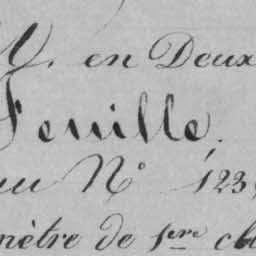 en Deux
Feuille.
au N° 123
mètre de 1re cla